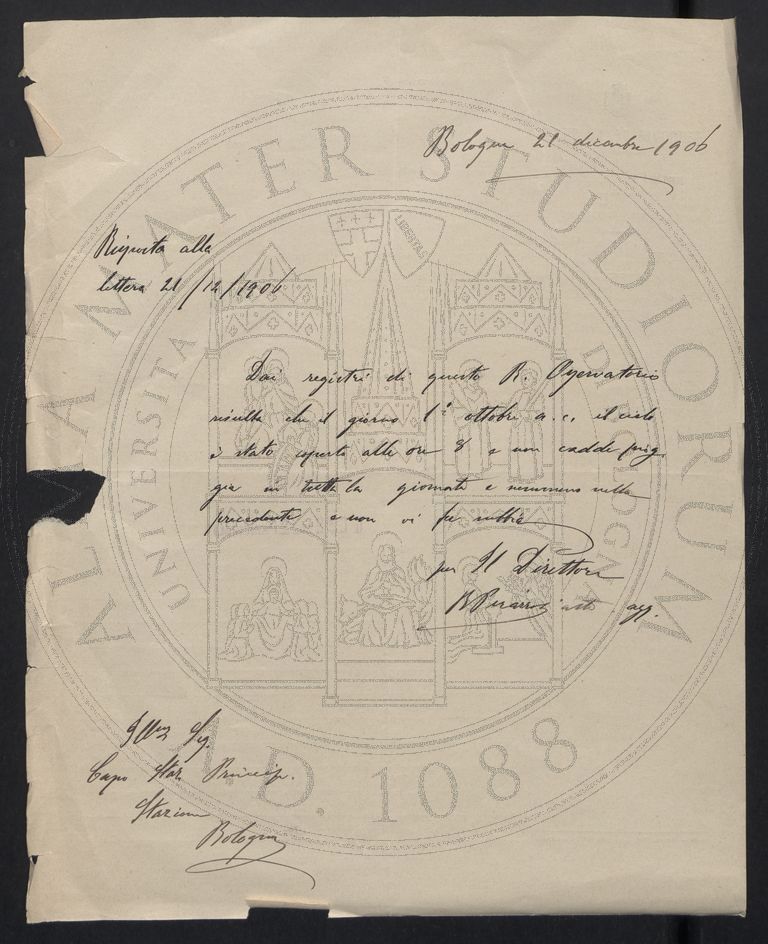 Bologna 21 dicembre 1906
Risposta alla
lettera 21/12/1906
Dai registri di questo R. Osservatorio
risulta che il giorno 1° ottobre a.c. il cielo
è stato coperto alle ore 8 e non cadde piog-
gia in tutta la giornata e nemmeno nella
precedente e non vi fu nebbia
per Il Direttore
Ill.mo Sig.
Capo Staz. Princip.
Stazione
Bologna
ALMA MATER STUDIORUM
A.D. 1088
UNIVERSITA
DI BOLOGNA
LIBERTAS